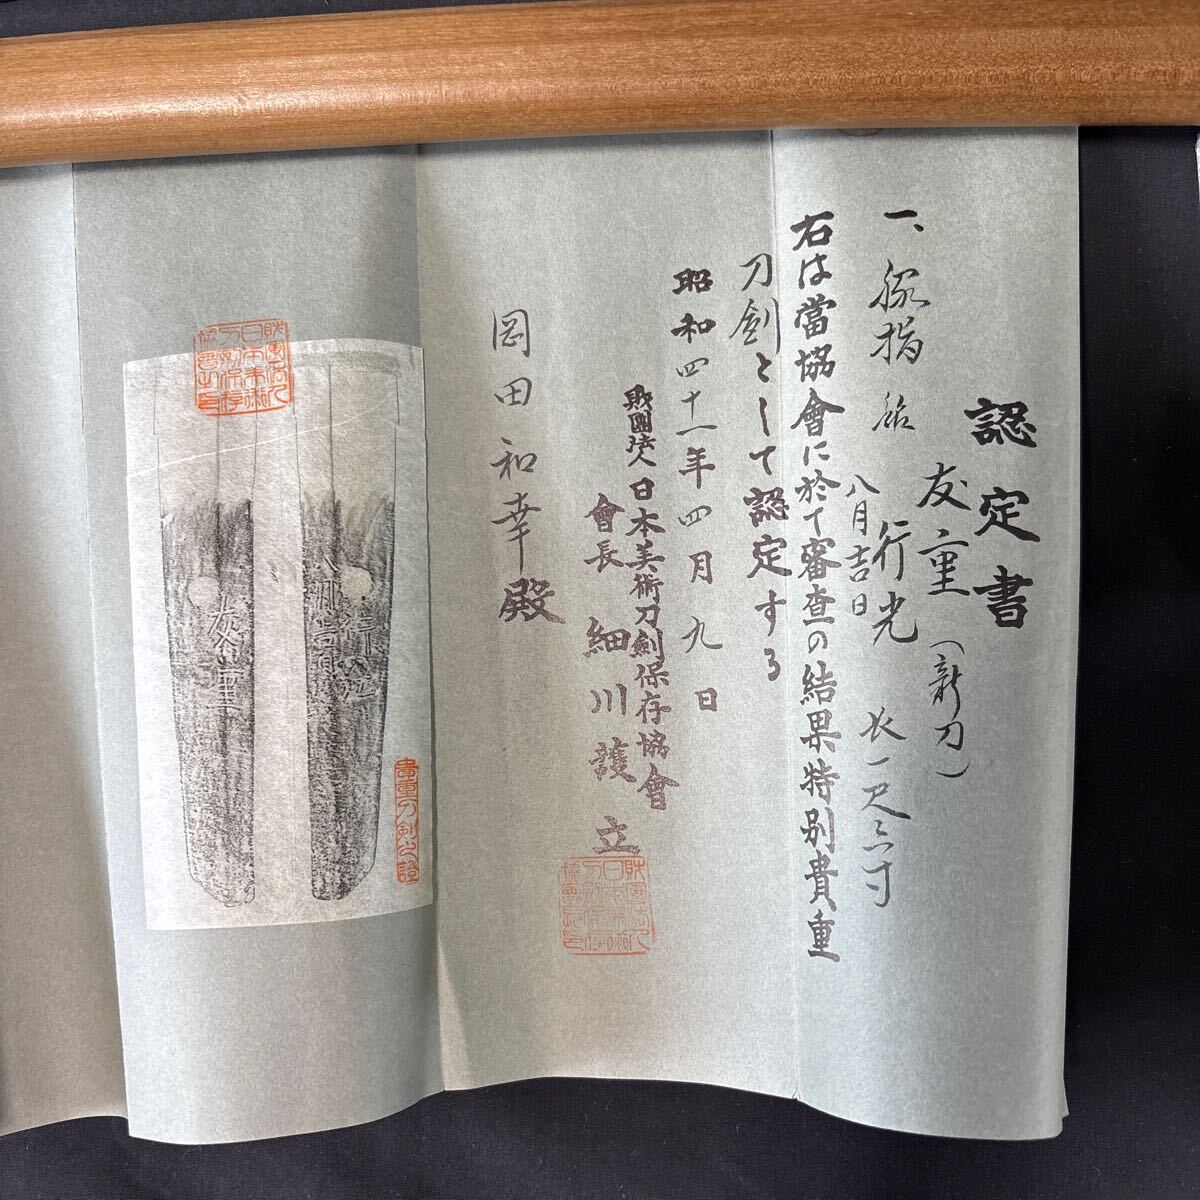 認定書
友重(新刀)
一、脇指 銘 行光 長一尺三寸
八月吉日
右は當協會に於て審査の結果特別貴重
刀劍として認定する
昭和四十一年四月九日
財團法人日本美術刀劍保存協會
會長 細川護立
岡田和幸殿
財團法人日本美術刀劍保存協會之印
貴重刀剣之證
友重
八月吉日